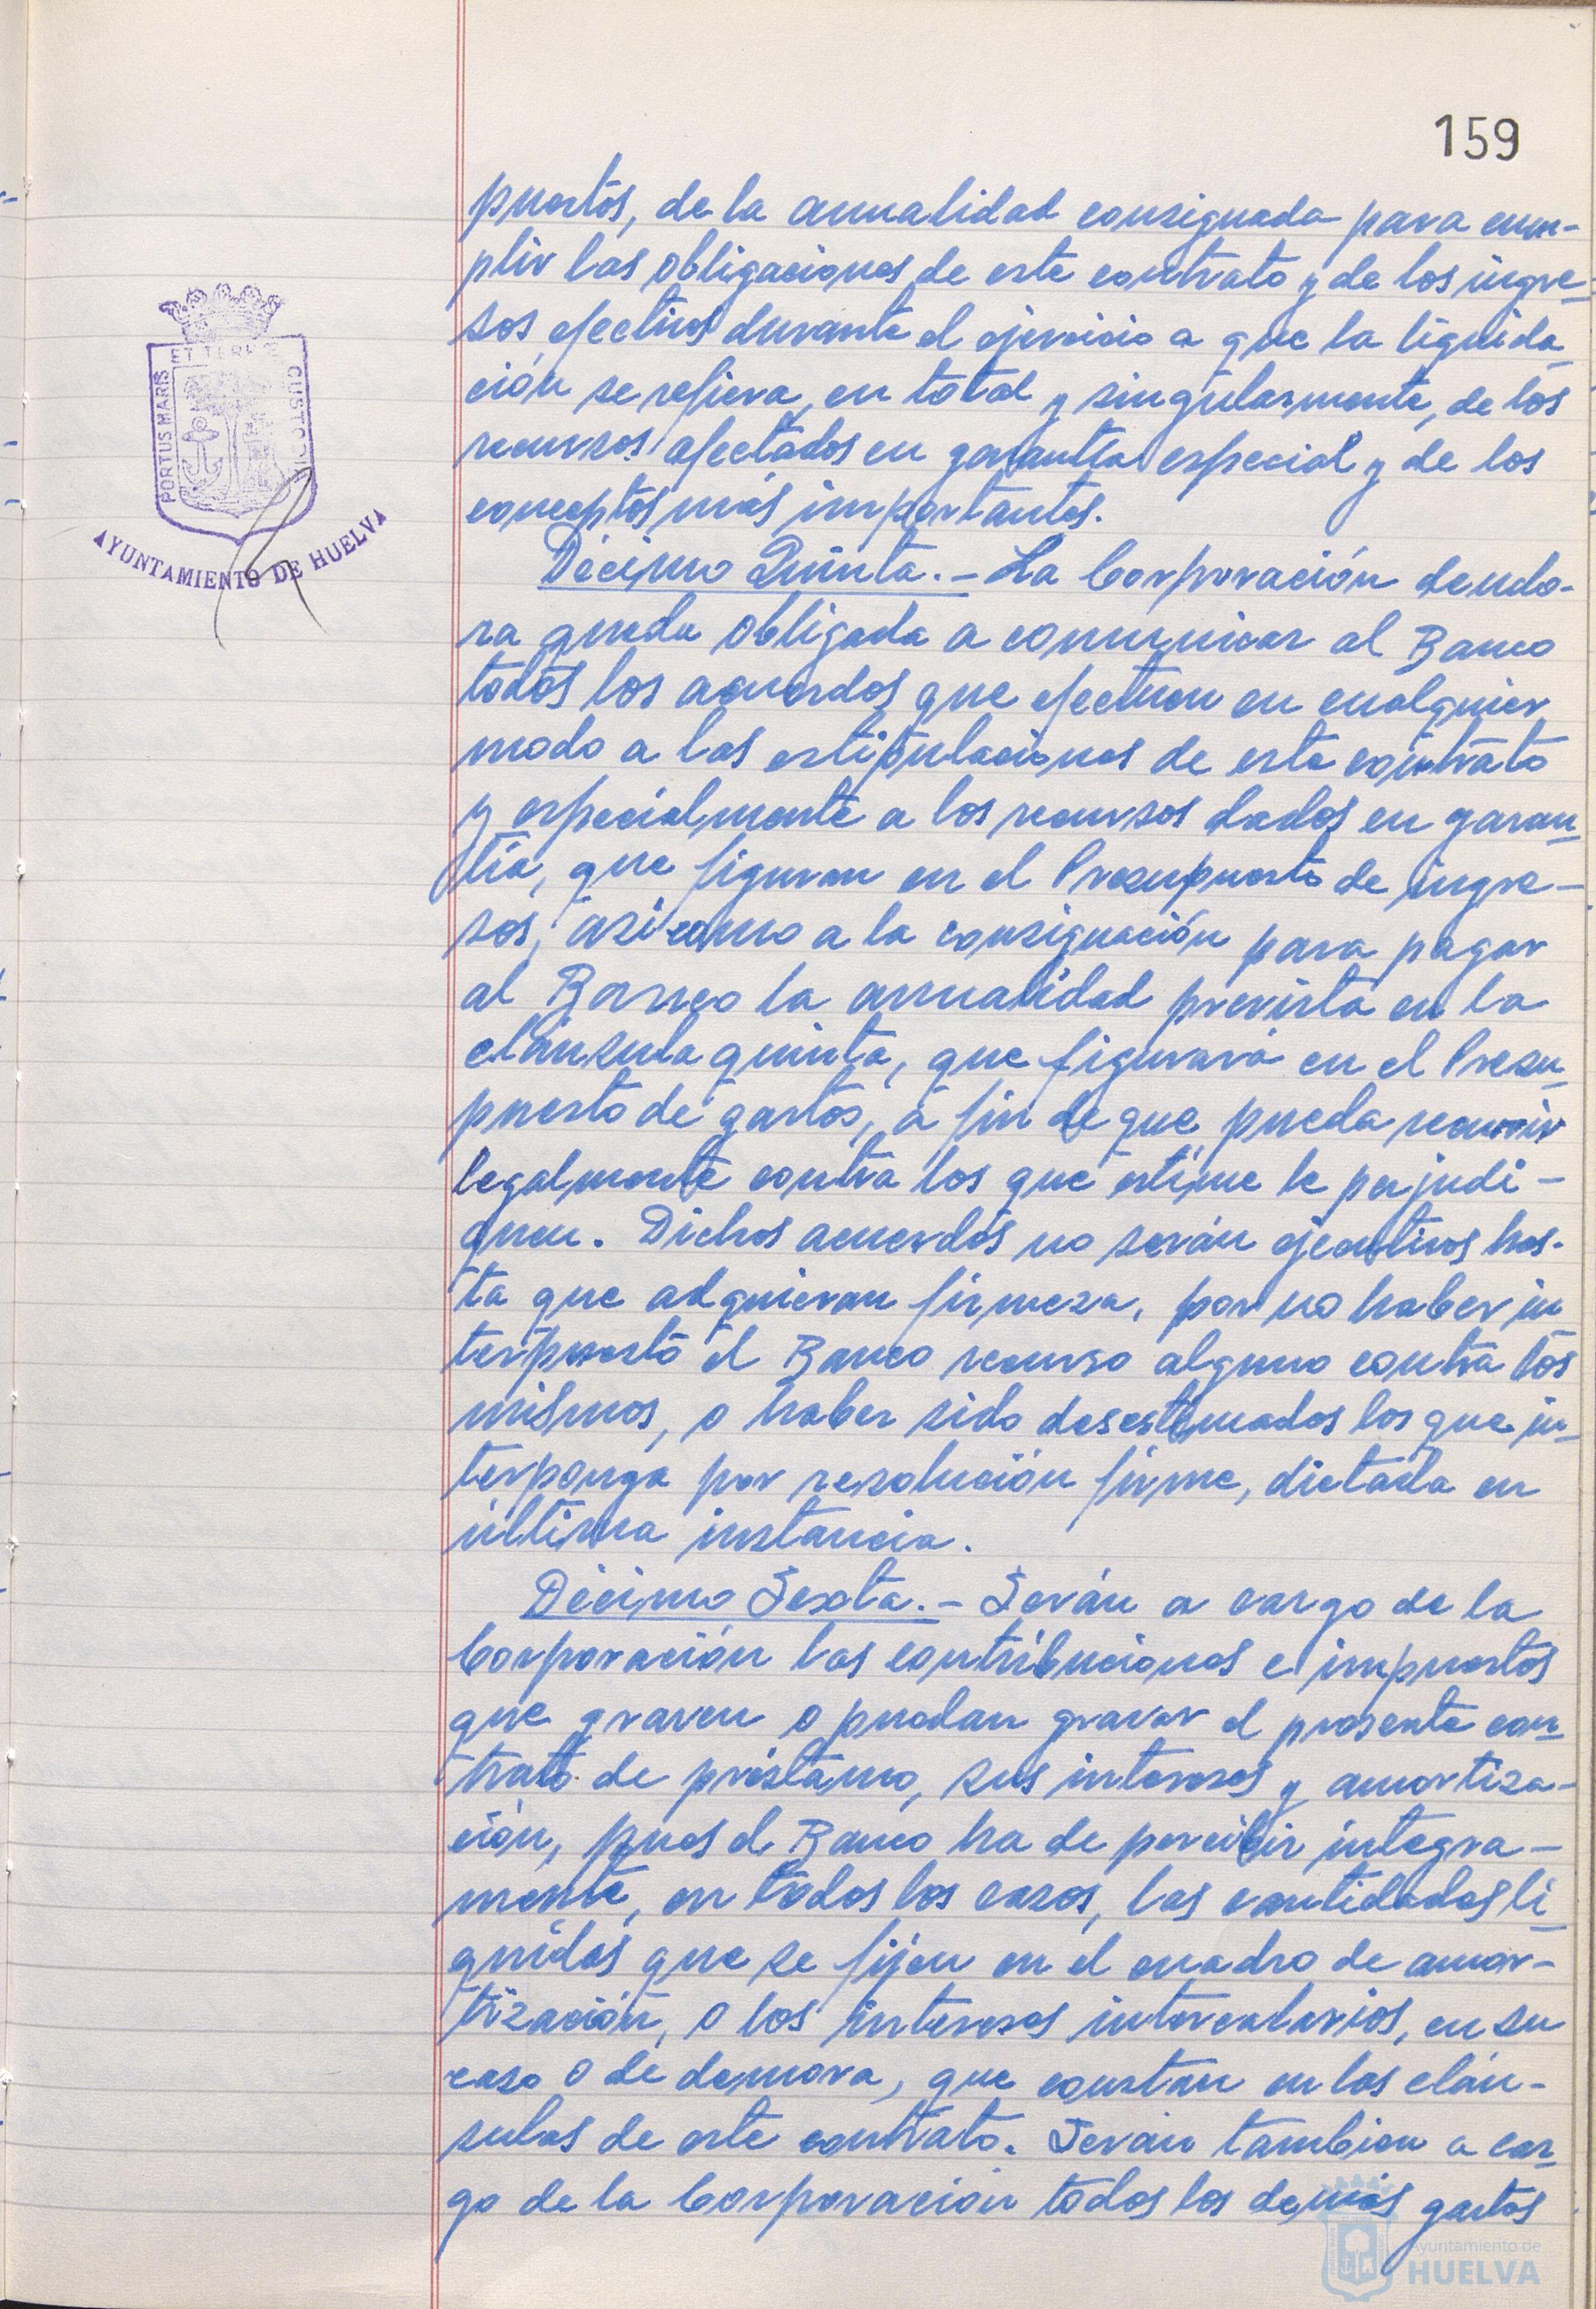 159
puestos, de la anualidad consignada para cum-
plir las obligaciones de este contrato y de los ingre-
sos efectivos durante el ejercicio a que la liquida
ción se refiera, en total y singularmente, de los
recursos afectados en garantía especial y de los
conceptos más importantes.
Décimo Quinta.- La Corporación deudo-
ra queda obligada a comunicar al Banco
todos los acuerdos que efectuen en cualquier
modo a las estipulaciones de este contrato
y especialmente a los recursos dados en garan-
tía, que figuran en el Presupuesto de ingre-
sos, asi como a la consignación para pagar
al Banco la anualidad prevista en la
cláusula quinta, que figurará en el Presu-
puesto de gastos, a fin de que pueda recurrir
legalmente contra los que estime le perjudi-
quen. Dichos acuerdos no serán ejecutivos has-
ta que adquieran firmeza, por no haber in
terpuesto el Banco recurso alguno contra los
mismos, o haber sido desestimados los que in-
terponga por resolución firme, dictada en
última instancia.
Décimo Sexta.- Serán a cargo de la
Corporación las contribuciones e impuestos
que graven o puedan gravar el presente con-
trato de préstamo, sus intereses y amortiza-
ción, pues el Banco ha de percibir integra-
mente, en todos los casos, las cantidades lí-
quidas que se fijen en el cuadro de amor-
tización, o los intereses intercalarios, en su
caso o de demora, que constan en las cláu-
sulas de este contrato. Serán tambien a car-
go de la Corporación todos los demás gastos
PORTUS MARIS ET TERRAE CUSTODIA
AYUNTAMIENTO DE HUELVA
Ayuntamiento de
HUELVA